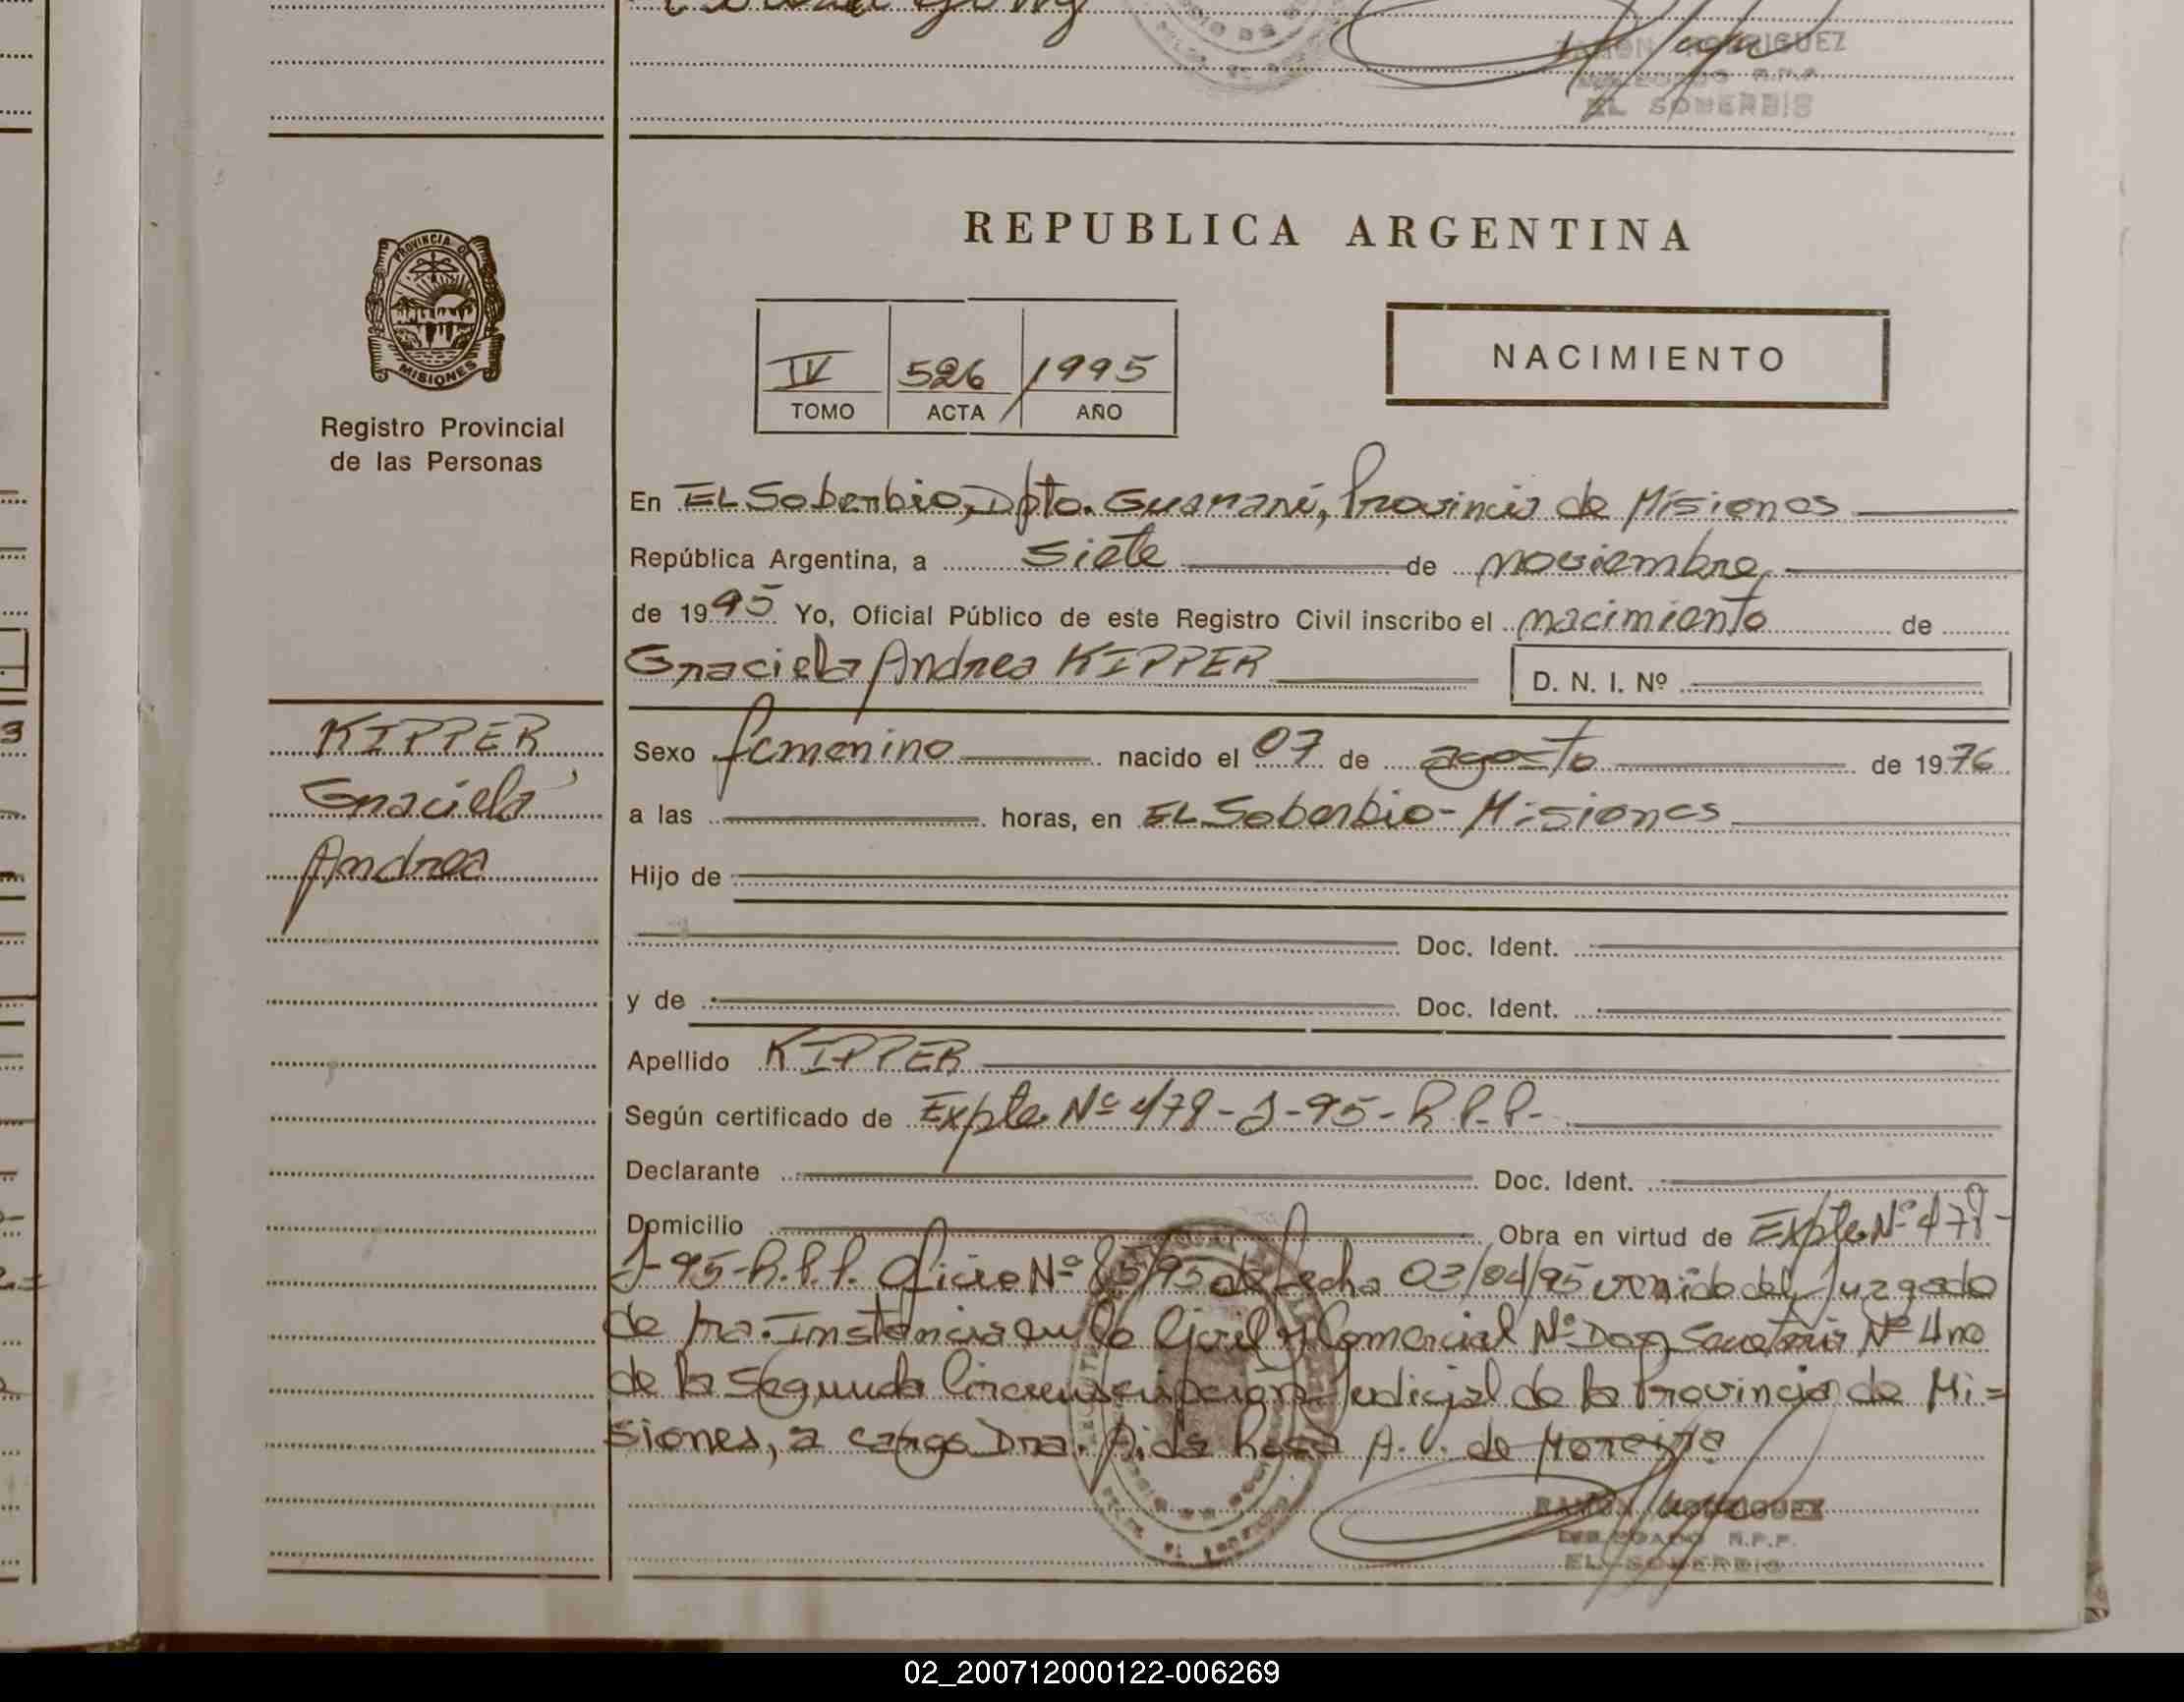 RAMON RODRIGUEZ
R.P.P.
EL SOBERBIO
PROVINCIA D
MISIONES
Registro Provincial
de las Personas
REPUBLICA ARGENTINA
IV 526 1995
TOMO ACTA AÑO
NACIMIENTO
En EL Soberbio, Dpto. Guaraní, Provincia de Misiones
República Argentina, a siete de noviembre
de 1995 Yo, Oficial Público de este Registro Civil inscribo el nacimiento de
Graciela Andrea KIPPER D. N. I. Nº
KIPPER
Graciela
Andrea
Sexo femenino nacido el 07 de agosto de 1976
a las horas, en EL Soberbio - Misiones
Hijo de
Doc. Ident.
y de Doc. Ident.
Apellido KIPPER
Según certificado de Expte Nº 478-J-95-R.P.P-
Declarante Doc. Ident.
Domicilio Obra en virtud de Expte Nº 478-
J-95-R.P.P. Oficio Nº 85/95 de fecha 03/04/95 venido del Juzgado
de 1ra. Instancia en lo Civil y Comercial Nº Dos, Secretaria Nº Uno
de la Segunda Circunscripcion Judicial de la Provincia de Mi=
siones, a cargo Dra. Aida Rosa A. V. de Moreira
RAMON RODRIGUEZ
DELEGADO R.P.P.
EL SOBERBIO
02_200712000122-006269